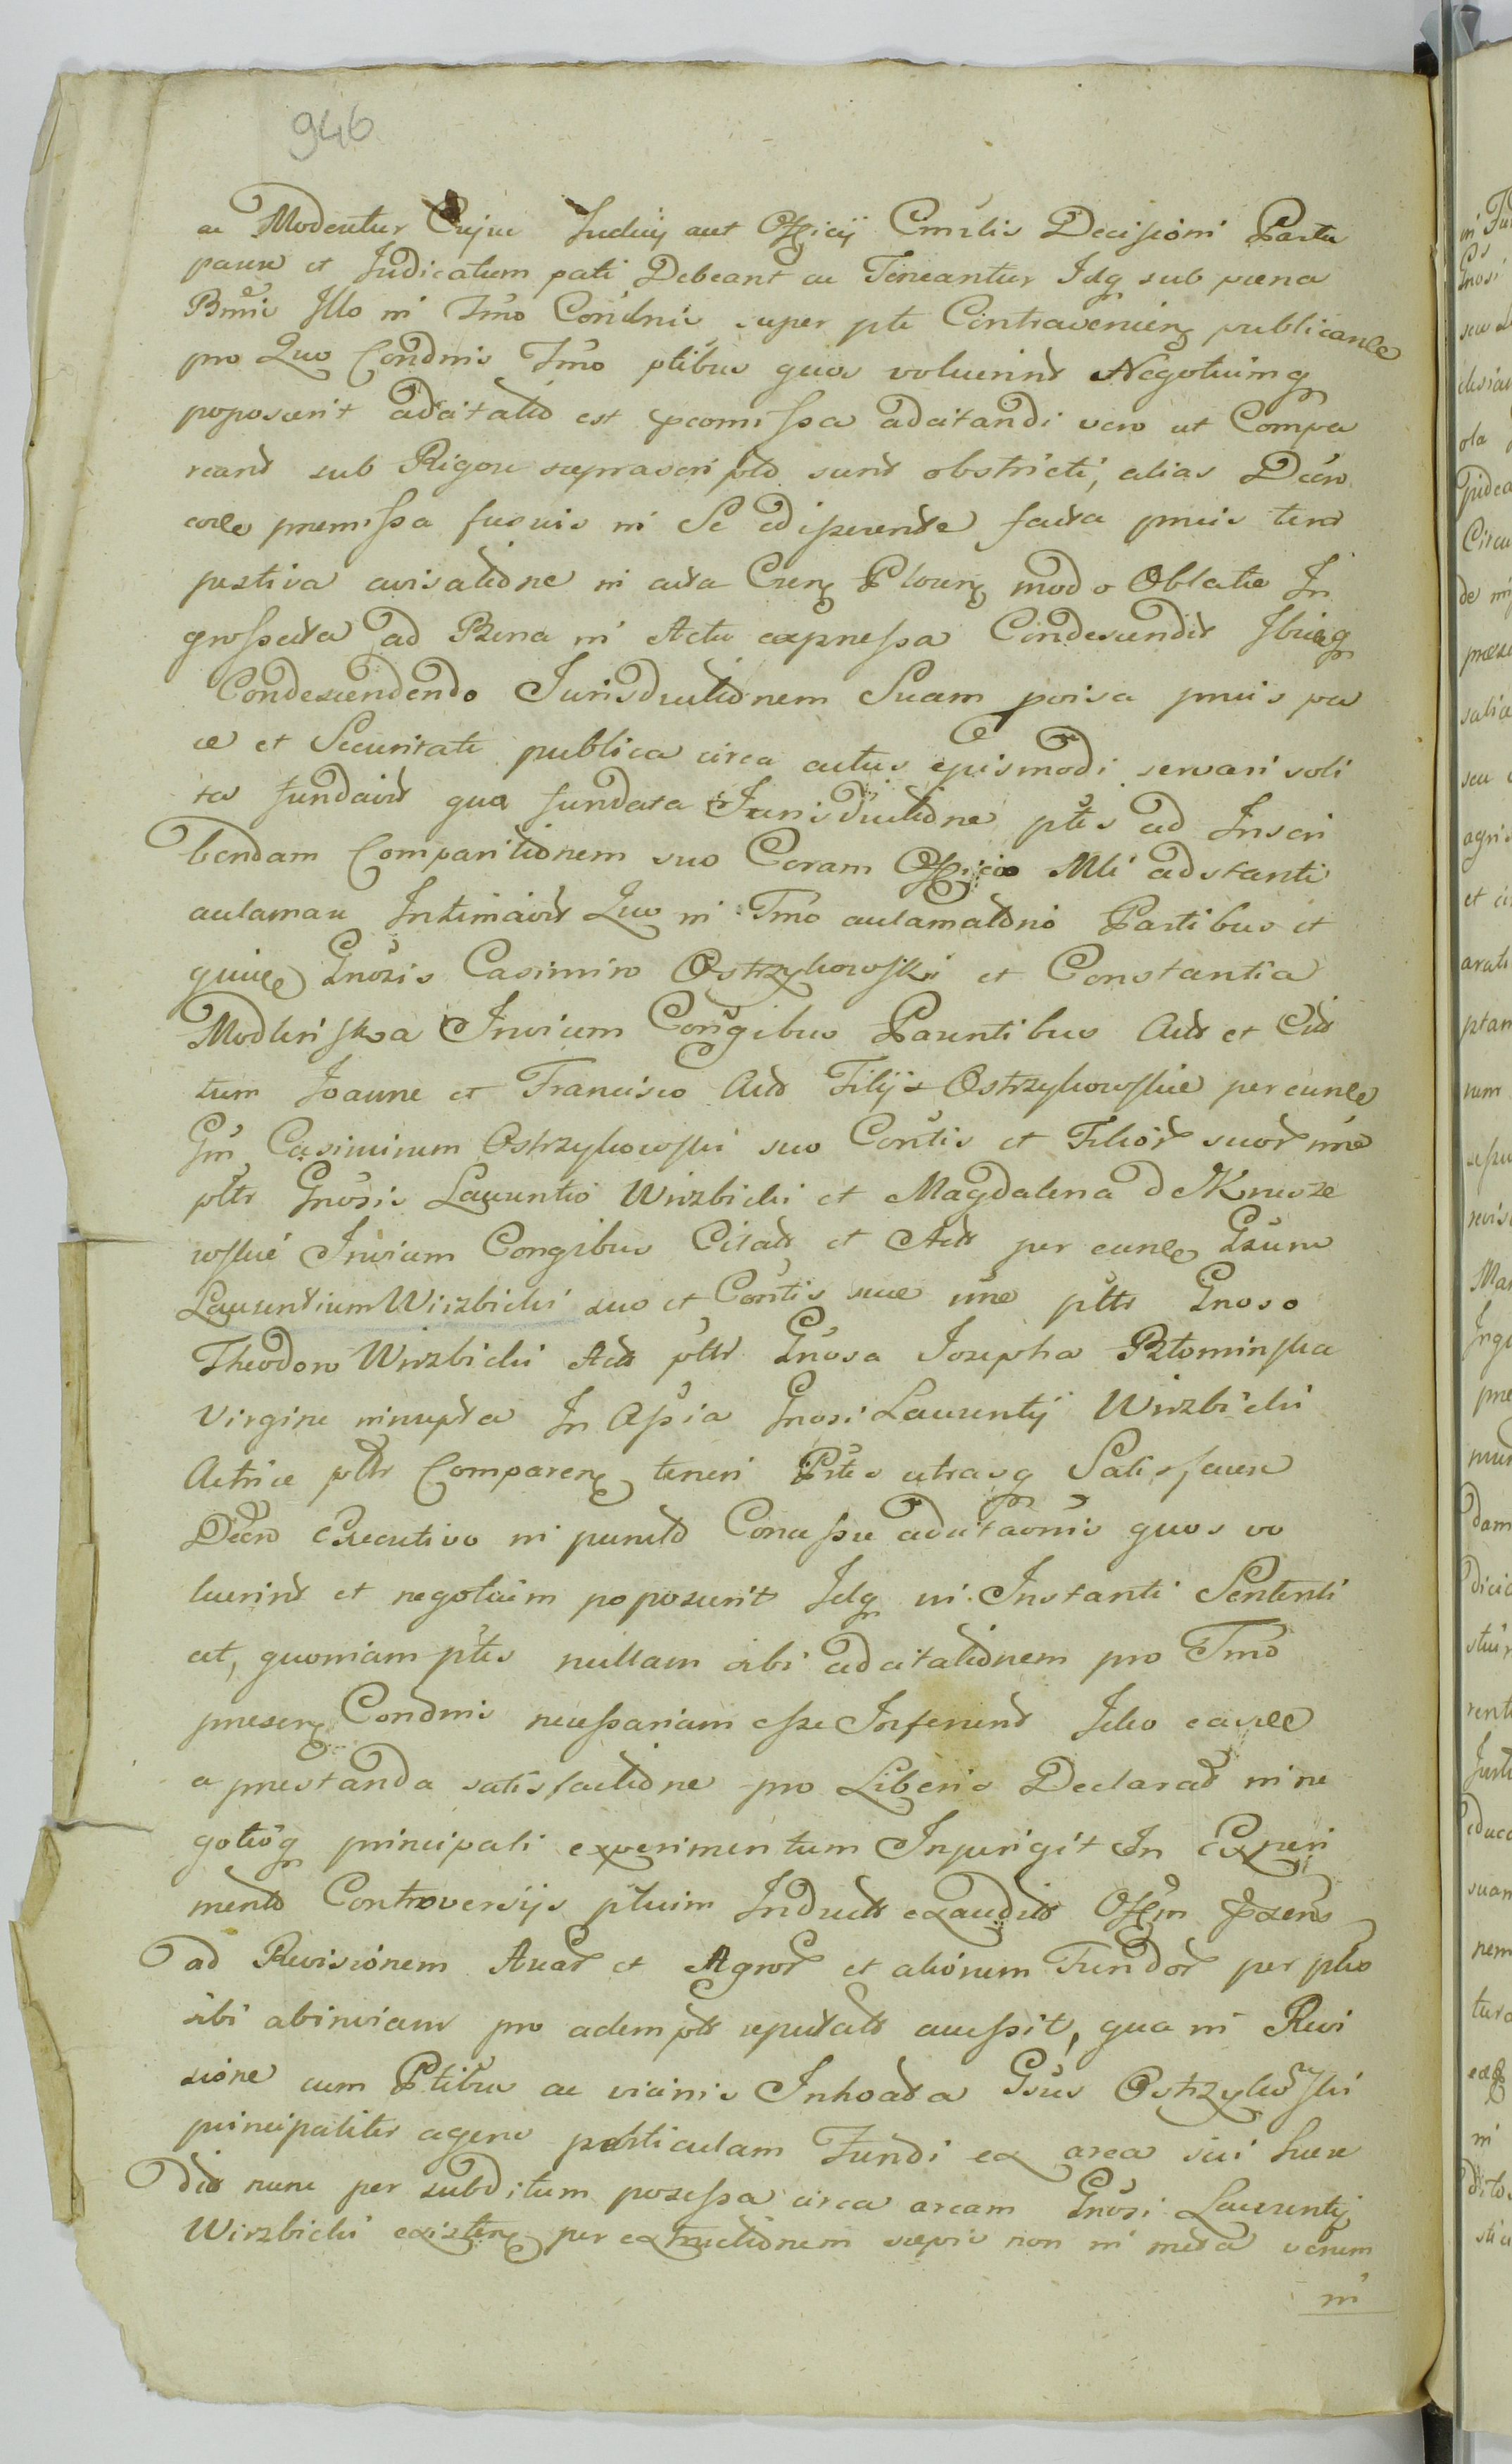 946
ac Moderetur Cujus Judicij aut Officij Cmslis Decisioni Partes
parere et Judicatum pati Debeant ac Teneantur Idq sub poena
Bmis Illo in Tmo Condnis super pte Contravenien publicande
pro Quo Condnis Tmo ptibus quos voluerint Negotiumq
poposcerit adcitatio est permissa adcitandi vero ut Compa
reant sub Rigore suprascripto sunt obstricti, alias Decre
premissa in Se facta previa tem
pestiva avisatione in acta modo Oblatae In
grossata ad Bona in Actu expressa Condescendit Ibiq
Condescendendo Jurisdictionem Suam previa pa
ce et Securitate publica circa actus ejusmodi servari soli
ta fundavit qua fundata Jurisdictione ptes ad Inscri
bendam Comparitionem suo Coram Officio Mli adstanti
aclamare Intimavit Quo in Tmo aclamatno Partibus et
quidem Gnosis Casimiro Ostrzykowski et Constantia
Modlinska Invicem Congibus Parentibus Actt et Citt
tum Joanne et Francisco Actt Filijs Ostrzykowskie per eunde
Gm Casimirum Ostrzykowski suo Contis et Filior suor nne
pltr Gnosis Laurentio Wirzbicki et Magdalena de Krusze
wskie Invicem Congibus Citatt et Actt per eunde Gsum
Laurentium Wirzbicki suo et Contis sue nne pltr Gnoso
Theodoro Wirzbicki Actt pltr Gnosa Josepha Płominska
Virgine innupta In Assia Gnosi Laurentij Wirzbicki
Actrice pltr Comparen teneri Ptes utrasq Satisfacere
Decro Executivo in puncto Concessae adcitaonis quos vo
luerint et negotium poposcerit Idq in Instanti Sententi
at, quoniam ptes nullam sibi adcitationem pro Tmo
presen Condnis necessariam esse Inferunt Ideo easde
a prestanda satisfactione pro Liberis Declarat in ne
gotioq principali experimentum Injungit In Experi
mento Controversijs ptium Inductt exauditt Offm Prsens
ad Revisionem Arear et Agror et aliorum Fundor per ptes
sibi abinvicem pro ademptt reputatt accessit, qua in Revi
sione cum Ptibus ac vicinis Inhoata Gsus Ostrzykowski
principaliter agens particulam Fundi ex area sui here
dio nunc per subditum possessa circa aream Gnosi Laurentij
Wirzbicki existen per extructionem sepis non in meta verum
in